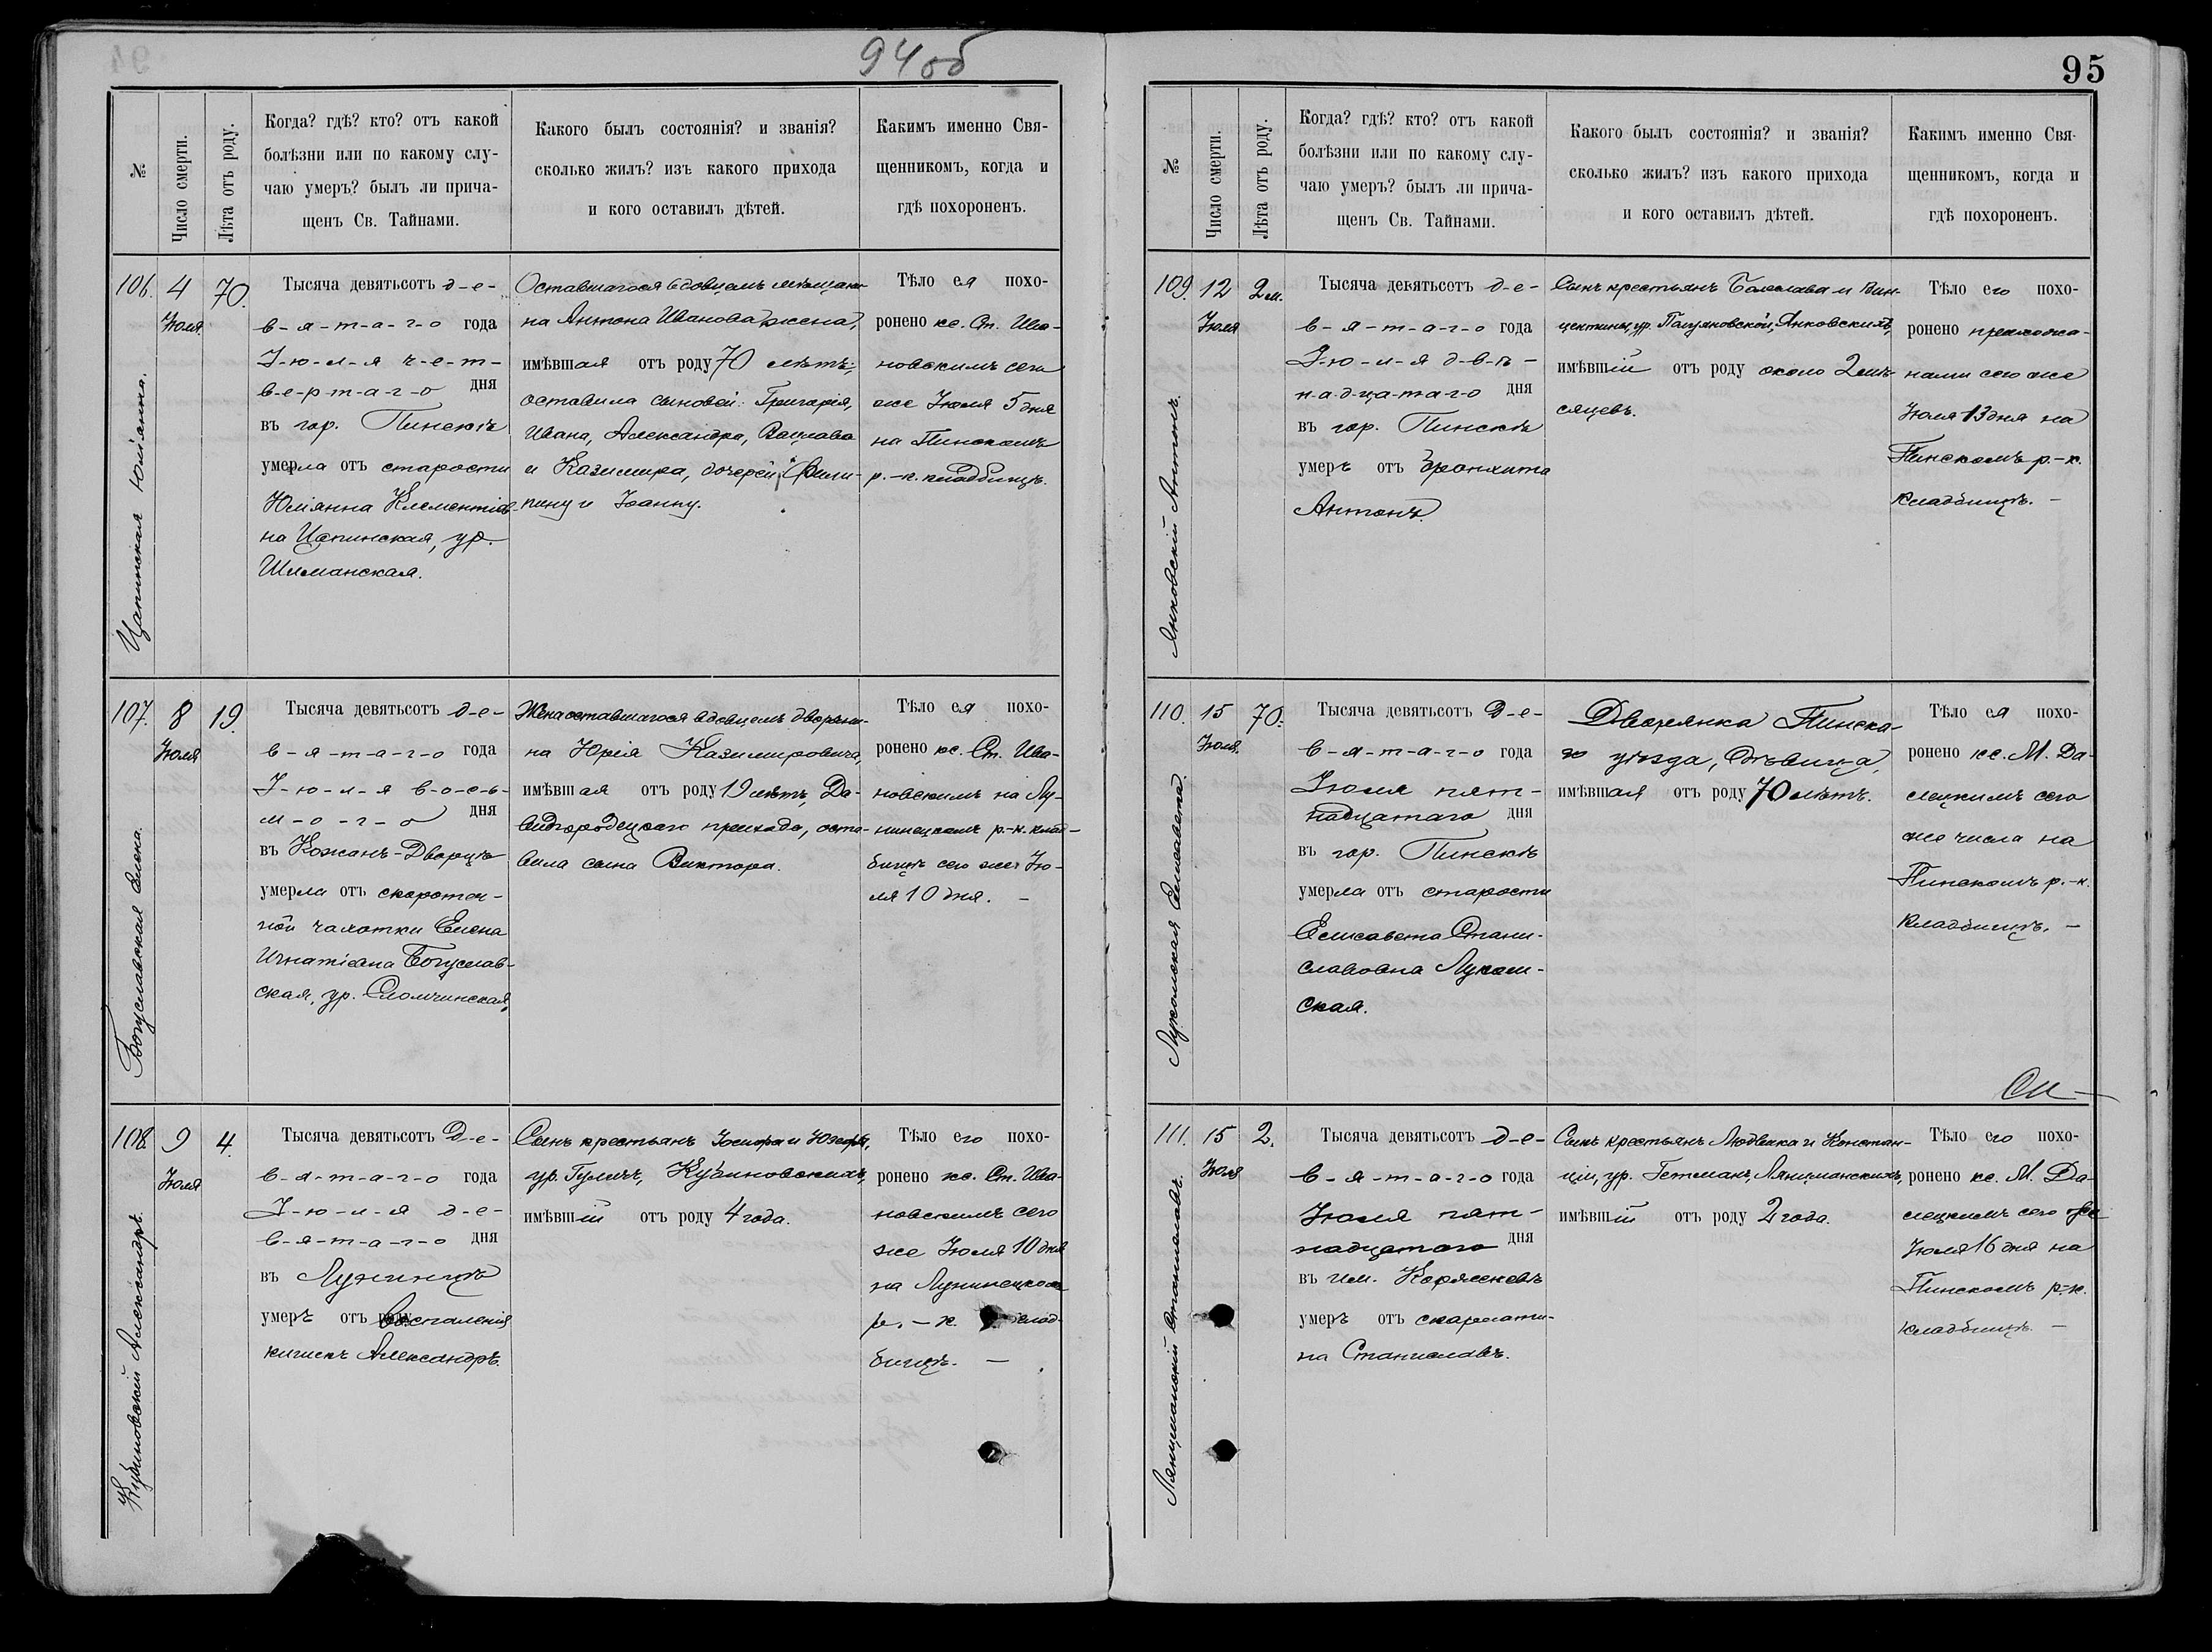 94об
№
Число смерти.
Лѣта отъ роду.
Когда? гдѣ? кто? отъ какой
болѣзни или по какому слу-
чаю умеръ? былъ ли прича-
щенъ Св. Тайнами.
Какого былъ состоянія? и званія?
сколько жилъ? изъ какого прихода
и кого оставилъ дѣтей.
Какимъ именно Свя-
щенникомъ, когда и
гдѣ похороненъ.
106.
Цапинская Юліанна.
4
Іюля
70.
Тысяча девятьсотъ д-е-
в-я-т-а-г-о года
І-ю-л-я ч-е-т-
в-е-р-т-а-г-о дня
въ гор. Пинскѣ
умерла отъ старости
Юліянна Клементіев-
на Цапинская, ур.
Шиманская.
Оставшагося вдовцемъ мѣщани-
на Антона Иванова жена,
имѣвшая отъ роду 70 лѣтъ;
оставила сыновей: Григорія,
Ивана, Александра, Вацлава
и Казимира, дочерей: Фили-
пину и Іоанну.
Тѣло ея похо-
ронено кс. Ст. Ива-
новскимъ сего
же Іюля 5 дня
на Пинскомъ
р.-к. кладбищѣ.
107.
Богуславская Елена.
8
Іюля
19.
Тысяча девятьсотъ д-е-
в-я-т-а-г-о года
І-ю-л-я в-о-с-ь-
м-о-г-о дня
въ Кожанъ-Дворцѣ
умерла отъ скоротеч-
ной чахотки Елена
Игнатіевна Богуслав-
ская, ур. Сломчинская,
Жена оставшагося вдовцемъ дворяни-
на Юрія Казимировича,
имѣвшая отъ роду 19 лѣтъ, Да-
видгородецкаго прихода, оста-
вила сына Виктора.
Тѣло ея похо-
ронено кс. Ст. Ива-
новскимъ на Лу-
нинецкомъ р.-к. клад-
бищѣ сего же Ію-
ля 10 дня. —
108.
Кубиновскій Александръ.
9
Іюля
4.
Тысяча девятьсотъ Д-е-
в-я-т-а-г-о года
І-ю-л-я д-е-
в-я-т-а-г-о дня
въ Лунинцѣ
умеръ отъ воспаленія
кишекъ Александръ.
Сынъ крестьянъ Іосифа и Юзефы,
ур. Гуличъ, Кубиновскихъ,
имѣвшій отъ роду 4 года.
Тѣло его похо-
ронено кс. Ст. Ива-
новскимъ сего
же Іюля 10 дня
на Лунинецкомъ
р.-к. клад-
бищѣ. —
95
№
Число смерти.
Лѣта отъ роду.
Когда? гдѣ? кто? отъ какой
болѣзни или по какому слу-
чаю умеръ? былъ ли прича-
щенъ Св. Тайнами.
Какого былъ состоянія? и званія?
сколько жилъ? изъ какого прихода
и кого оставилъ дѣтей.
Какимъ именно Свя-
щенникомъ, когда и
гдѣ похороненъ.
109.
Янковскій Антонъ.
12
Іюля
2 м.
Тысяча девятьсотъ д-е-
в-я-т-а-г-о года
І-ю-л-я д-в-ѣ-
н-а-д-ц-а-т-а-г-о дня
въ гор. Пинскѣ
умеръ отъ бронхита
Антонъ.
Сынъ крестьянъ Болеслава и Вин-
центины, ур. Янковскихъ,
имѣвшій отъ роду около 2 мѣ-
сяцевъ.
Тѣло его похо-
ронено прихожа-
нами сего же
Іюля 13 дня на
Пинскомъ р.-к.
кладбищѣ. —
110.
Лукомская Елисавета.
15
Іюля
70.
Тысяча девятьсотъ Д-е-
в-я-т-а-г-о года
Іюля пят-
надцатаго дня
въ гор. Пинскѣ
умерла отъ старости
Елисавета Стани-
славовна Луком-
ская.
Дворянка Пинска-
го уѣзда, дѣвица,
имѣвшая отъ роду 70 лѣтъ.
Тѣло ея похо-
ронено кс. М. Да-
лецкимъ сего
же числа на
Пинскомъ р.-к.
кладбищѣ. —
111.
Лянцманскій Станиславъ.
15
Іюля
2.
Тысяча девятьсотъ д-е-
в-я-т-а-г-о года
Іюля пят-
надцатаго дня
въ им.
умеръ отъ скарлати-
на Станиславъ.
Сынъ крестьянъ Людвика и Констан-
ціи, ур. Гетманъ, Лянцманскихъ,
имѣвшій отъ роду 2 года.
Тѣло его похо-
ронено кс. М. Да-
лецкимъ сего же
Іюля 16 дня на
Пинскомъ р.-к.
кладбищѣ. —